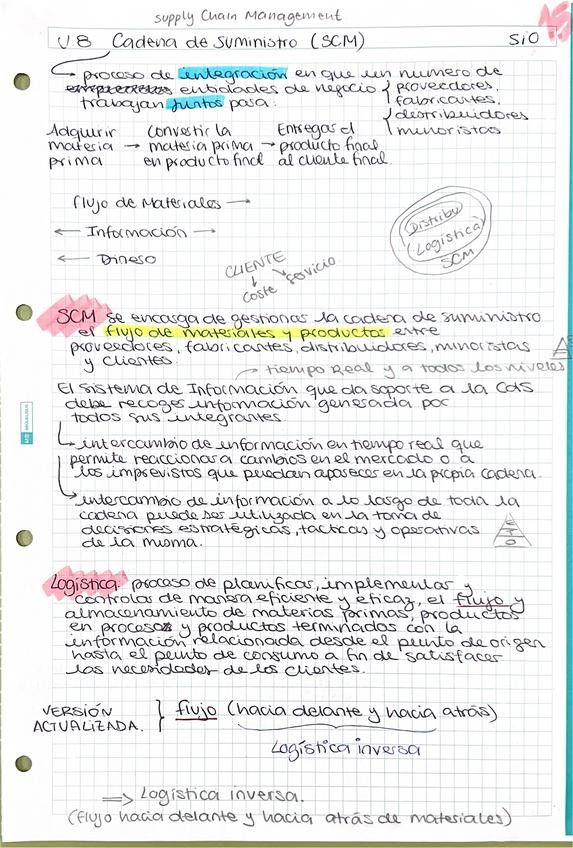 Supply Chain Management
U.8 Cadena de Suministro (SCM) SiO
proceso de integración en que un numero de
entidades de negocio { proveedores,
trabajan juntos para: fabricantes,
distribuidores
minoristas
Adquirir materia prima → Convertir la materia prima en producto final → Entregar el producto final al cliente final.
flujo de Materiales →
← Información →
← Dinero
Distribu
Logística
SCM
CLIENTE
coste servicio
SCM se encarga de gestionar la cadena de suministro
el flujo de materiales y productos entre
proveedores, fabricantes, distribuidores, minoristas
y clientes.
→ tiempo Real y a todos los niveles
El Sistema de Información que da soporte a la CdS
debe recoger información generada por
todos sus integrantes.
→ intercambio de información en tiempo real que
permite reaccionar a cambios en el mercado o a
los imprevistos que puedan aparecer en la propia cadena.
→ intercambio de información a lo largo de toda la
cadena puede ser utilizada en la toma de
decisiones estratégicas, tacticas y operativas
de la misma.
E
T
O
Logística: proceso de planificar, implementar y
controlar de manera eficiente y eficaz, el flujo y
almacenamiento de materias primas, productos
en proceso y productos terminados con la
información relacionada desde el punto de origen
hasta el punto de consumo a fin de satisfacer
las necesidades de los clientes.
VERSIÓN
ACTUALIZADA. } flujo (hacia delante y hacia atrás)
Logística inversa
⟹ Logística inversa.
(flujo hacia delante y hacia atrás de materiales)